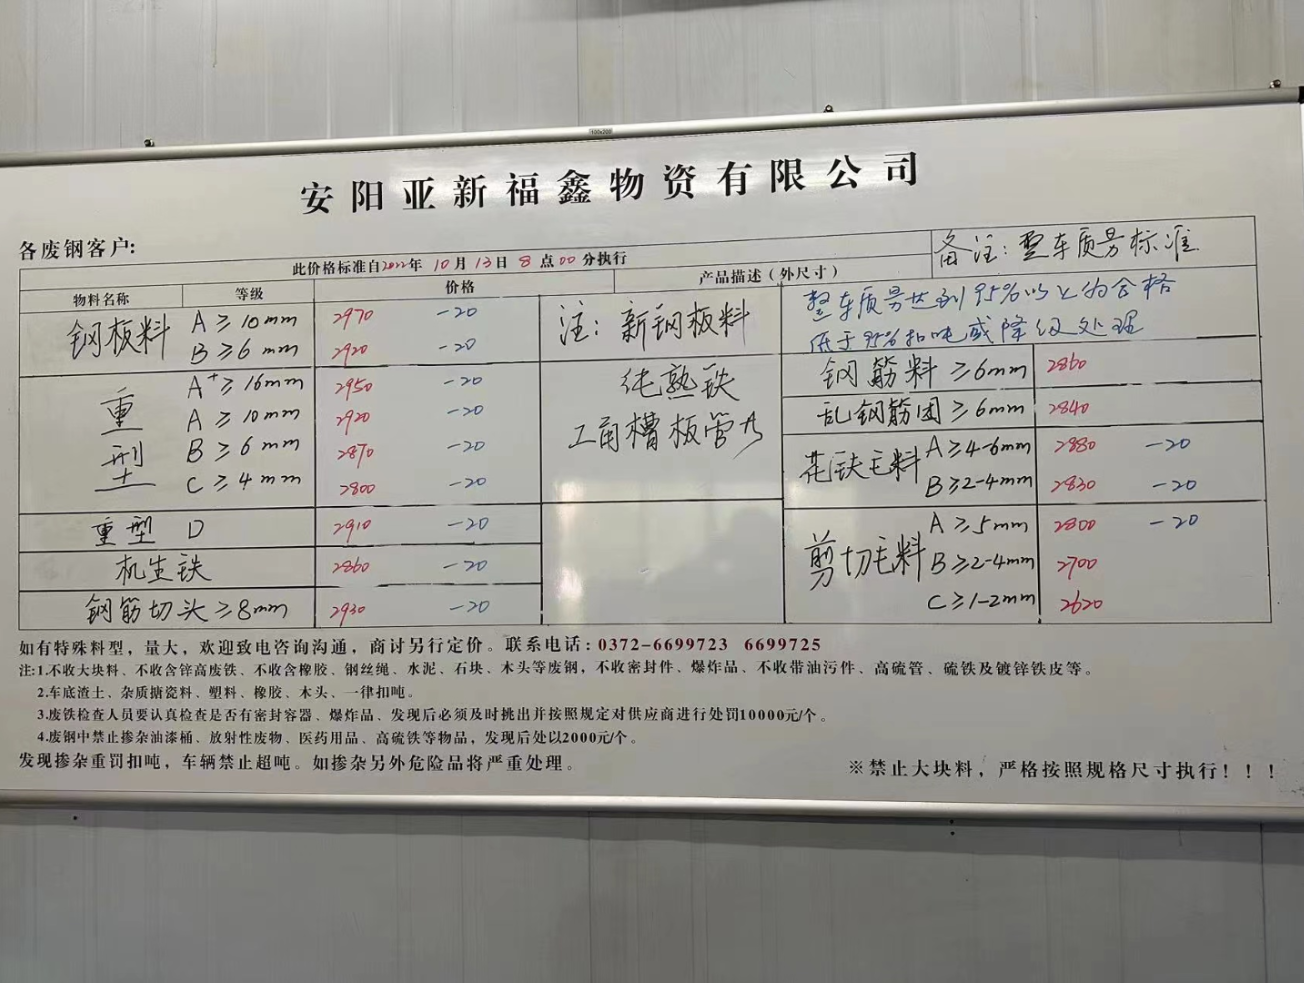 安阳亚新福鑫物资有限公司
各废钢客户:
此价格标准自2022年 10月13日8点00分执行
备注:整车质量标准
物料名称 等级 价格 产品描述(外尺寸)
钢板料 A≥10mm 2970 -20
B≥6mm 2920 -20
重型 A+≥16mm 2950 -20
A≥10mm 2920 -20
B≥6mm 2870 -20
C≥4mm 2800 -20
重型 D 2910 -20
机生铁 2860 -20
钢筋切头≥8mm 2930 -20
注:新钢板料
纯熟铁
工角槽板管
整车质量达到95%以上为合格
低于95%扣吨或降级处理
钢筋料≥6mm 2860
乱钢筋团≥6mm 2840
花铁毛料 A≥4-6mm 2880 -20
B≥2-4mm 2830 -20
剪切毛料 A≥5mm 2800 -20
B≥2-4mm 2700
C≥1-2mm 2620
如有特殊料型,量大,欢迎致电咨询沟通,商讨另行定价。联系电话:0372-6699723 6699725
注:1.不收大块料、不收含锌高废铁、不收含橡胶、钢丝绳、水泥、石块、木头等废钢,不收密封件、爆炸品、不收带油污件、高硫管、硫铁及镀锌铁皮等。
2.车底渣土、杂质搪瓷料、塑料、橡胶、木头、一律扣吨。
3.废铁检查人员要认真检查是否有密封容器、爆炸品、发现后必须及时挑出并按照规定对供应商进行处罚10000元/个。
4.废钢中禁止掺杂油漆桶、放射性废物、医药用品、高硫铁等物品,发现后处以2000元/个。
发现掺杂重罚扣吨,车辆禁止超吨。如掺杂另外危险品将严重处理。
※禁止大块料,严格按照规格尺寸执行!!!